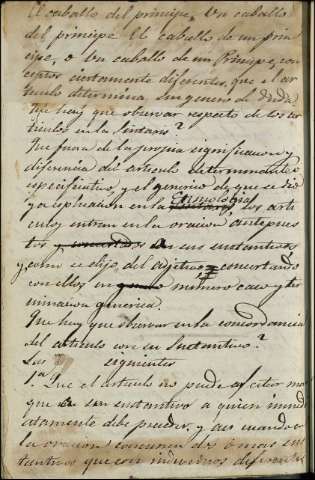 El caballo del principe, Un caballo
del principe El caballo de un prin
cipe, o Un caballo de un Principe, con
ceptos ciertamente diferentes, que el ar
ticulo determina, sin genero de duda.
Que hay que observar respecto de los ar
ticulos en la sintaxis?
Que fuera de la propia significacion y
diferencia del articulo determinante
especificativo, y el generico de que se dio
ya esplicacion en la Etimologia, los arti
culos, entran en la oracion antepues
tos a sus sustantivos
y, como se dijo del adjetivo concertando
con ellos en numero caso y ter
minacion generica.
Que hay que observar en la concordancia
del articulo con su Sustantivo?
Las siguientes
1ª Que el articulo no puede afectar mas
que a un sustantivo a quien inmedi
atamente debe preceder, y asi cuando en
la oracion concurren dos ó mas sus
tantivos que son individuos diferentes